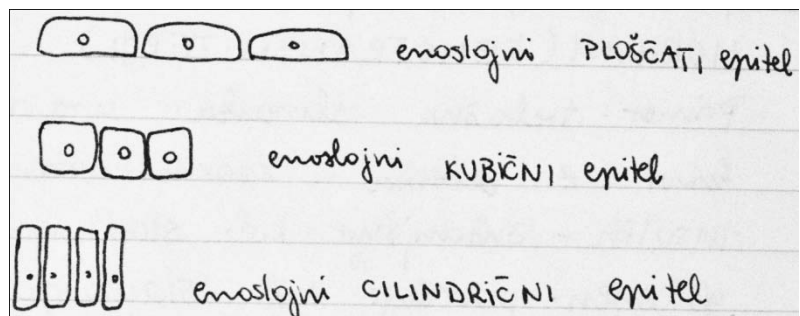 enoslojni PLOŠČATI epitel
enoslojni KUBIČNI epitel
enoslojni CILINDRIČNI epitel